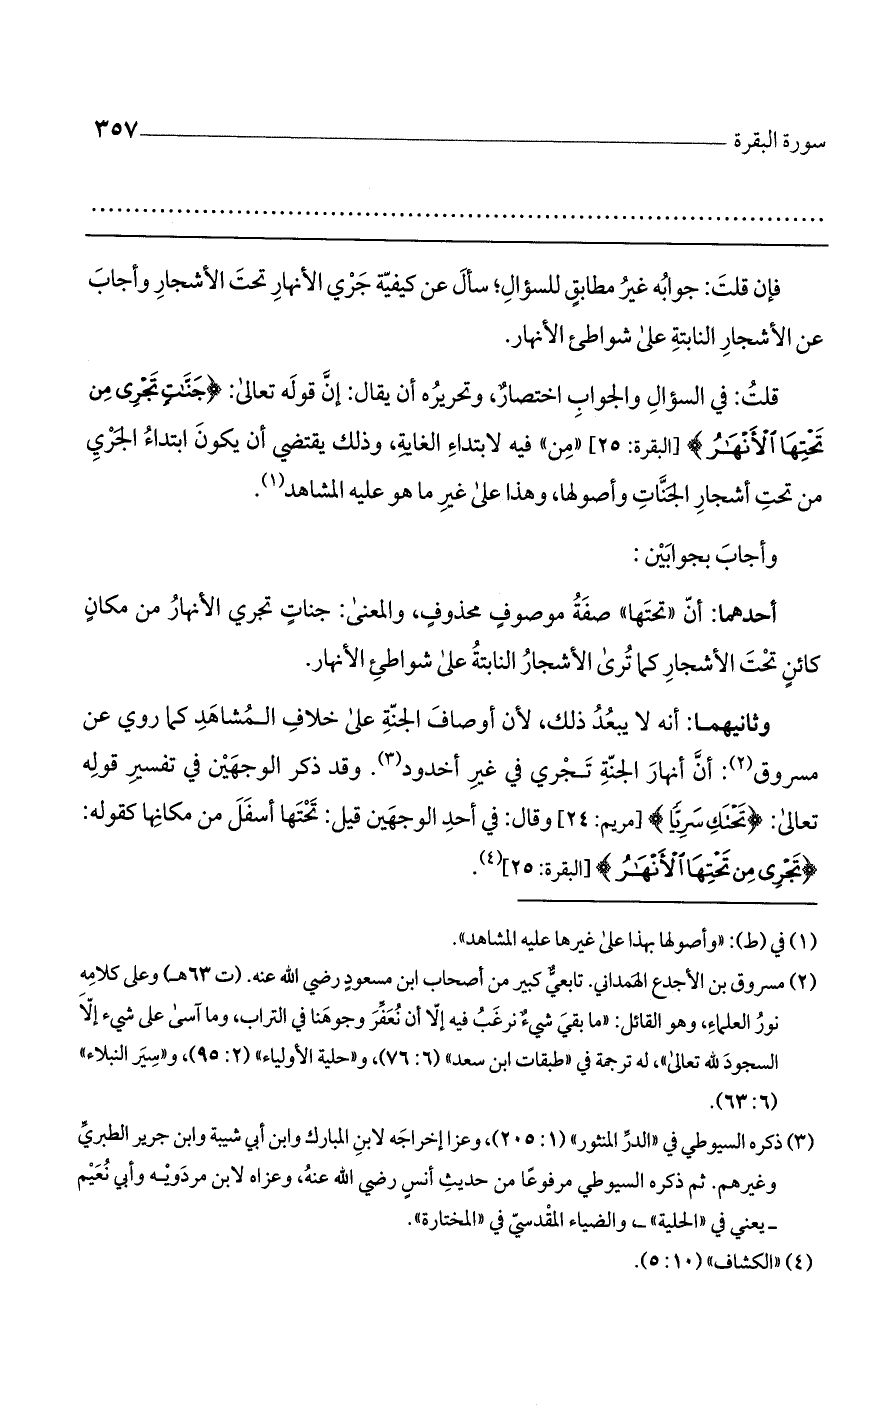 سورة البقرة ٣٥٧
فإن قلتَ: جوابُه غيرُ مطابقٍ للسؤالِ؛ سألَ عن كيفيّة جَرْي الأنهارِ تحتَ الأشجارِ وأجابَ
عن الأشجارِ النابتةِ علىٰ شواطئ الأنهار.
قلتُ: في السؤالِ والجوابِ اختصارٌ، وتحريرُه أن يقال: إنَّ قولَه تعالىٰ: ﴿جَنَّاتٍ تَجْرِى مِن
تَحْتِهَا ٱلْأَنْهَٰرُ﴾ [البقرة: ٢٥] «مِن» فيه لابتداءِ الغايةِ، وذلك يقتضي أن يكونَ ابتداءُ الجَرْيِ
من تحتِ أشجارِ الجَنَّاتِ وأصولها، وهذا علىٰ غيرِ ما هو عليه المشاهد(١).
وأجابَ بجوابَيْن:
أحدهما: أنّ «تحتَها» صفَةُ موصوفٍ محذوفٍ، والمعنىٰ: جناتٍ تجري الأنهارُ من مكانٍ
كائنٍ تحْتَ الأشجارِ كما تُرىٰ الأشجارُ النابتةُ علىٰ شواطئِ الأنهار.
وثانيهما: أنه لا يبعُدُ ذلك، لأن أوصافَ الجنّةِ علىٰ خلافِ المُشاهَدِ كما روي عن
مسروق(٢): أنَّ أنهارَ الجنّةِ تَجْري في غيرِ أخدود(٣). وقد ذكر الوجهَيْن في تفسيرِ قولِه
تعالىٰ: ﴿تَحْتَكِ سَرِيًّا﴾ [مريم: ٢٤] وقال: في أحدِ الوجهَين قيل: تَحْتَها أسفَلَ من مكانِها كقوله:
﴿تَجْرِى مِن تَحْتِهَا ٱلْأَنْهَٰرُ﴾ [البقرة: ٢٥](٤).
(١) في (ط): «وأصولها بهذا علىٰ غيرها عليه المشاهد».
(٢) مسروق بن الأجدع الهَمداني. تابعيٌّ كبير من أصحاب ابن مسعودٍ رضي الله عنه. (ت ٦٣هـ) وعلى كلامِهِ
نورُ العلماءِ، وهو القائل: «ما بقيَ شيءٌ نرغَبُ فيه إلّا أن نُعَفِّرَ وجوهَنا في التراب، وما آسىٰ على شيء إلّا
السجودَ لله تعالىٰ»، له ترجمة في «طبقات ابن سعد» (٦: ٧٦)، و«حلية الأولياء» (٢: ٩٥)، و«سِيَر النبلاء»
(٦: ٦٣).
(٣) ذكره السيوطي في «الدرِّ المنثور» (١: ٢٠٥)، وعزا إخراجَه لابنِ المبارك وابن أبي شيبة وابن جرير الطبريِّ
وغيرهم. ثم ذكره السيوطي مرفوعًا من حديثِ أنسٍ رضي الله عنهُ، وعزاه لابن مردَويْه وأبي نُعَيْم
ـ يعني في «الحلية» ـ، والضياء المقْدسيّ في «المختارة».
(٤) «الكشاف» (١٠: ٥).